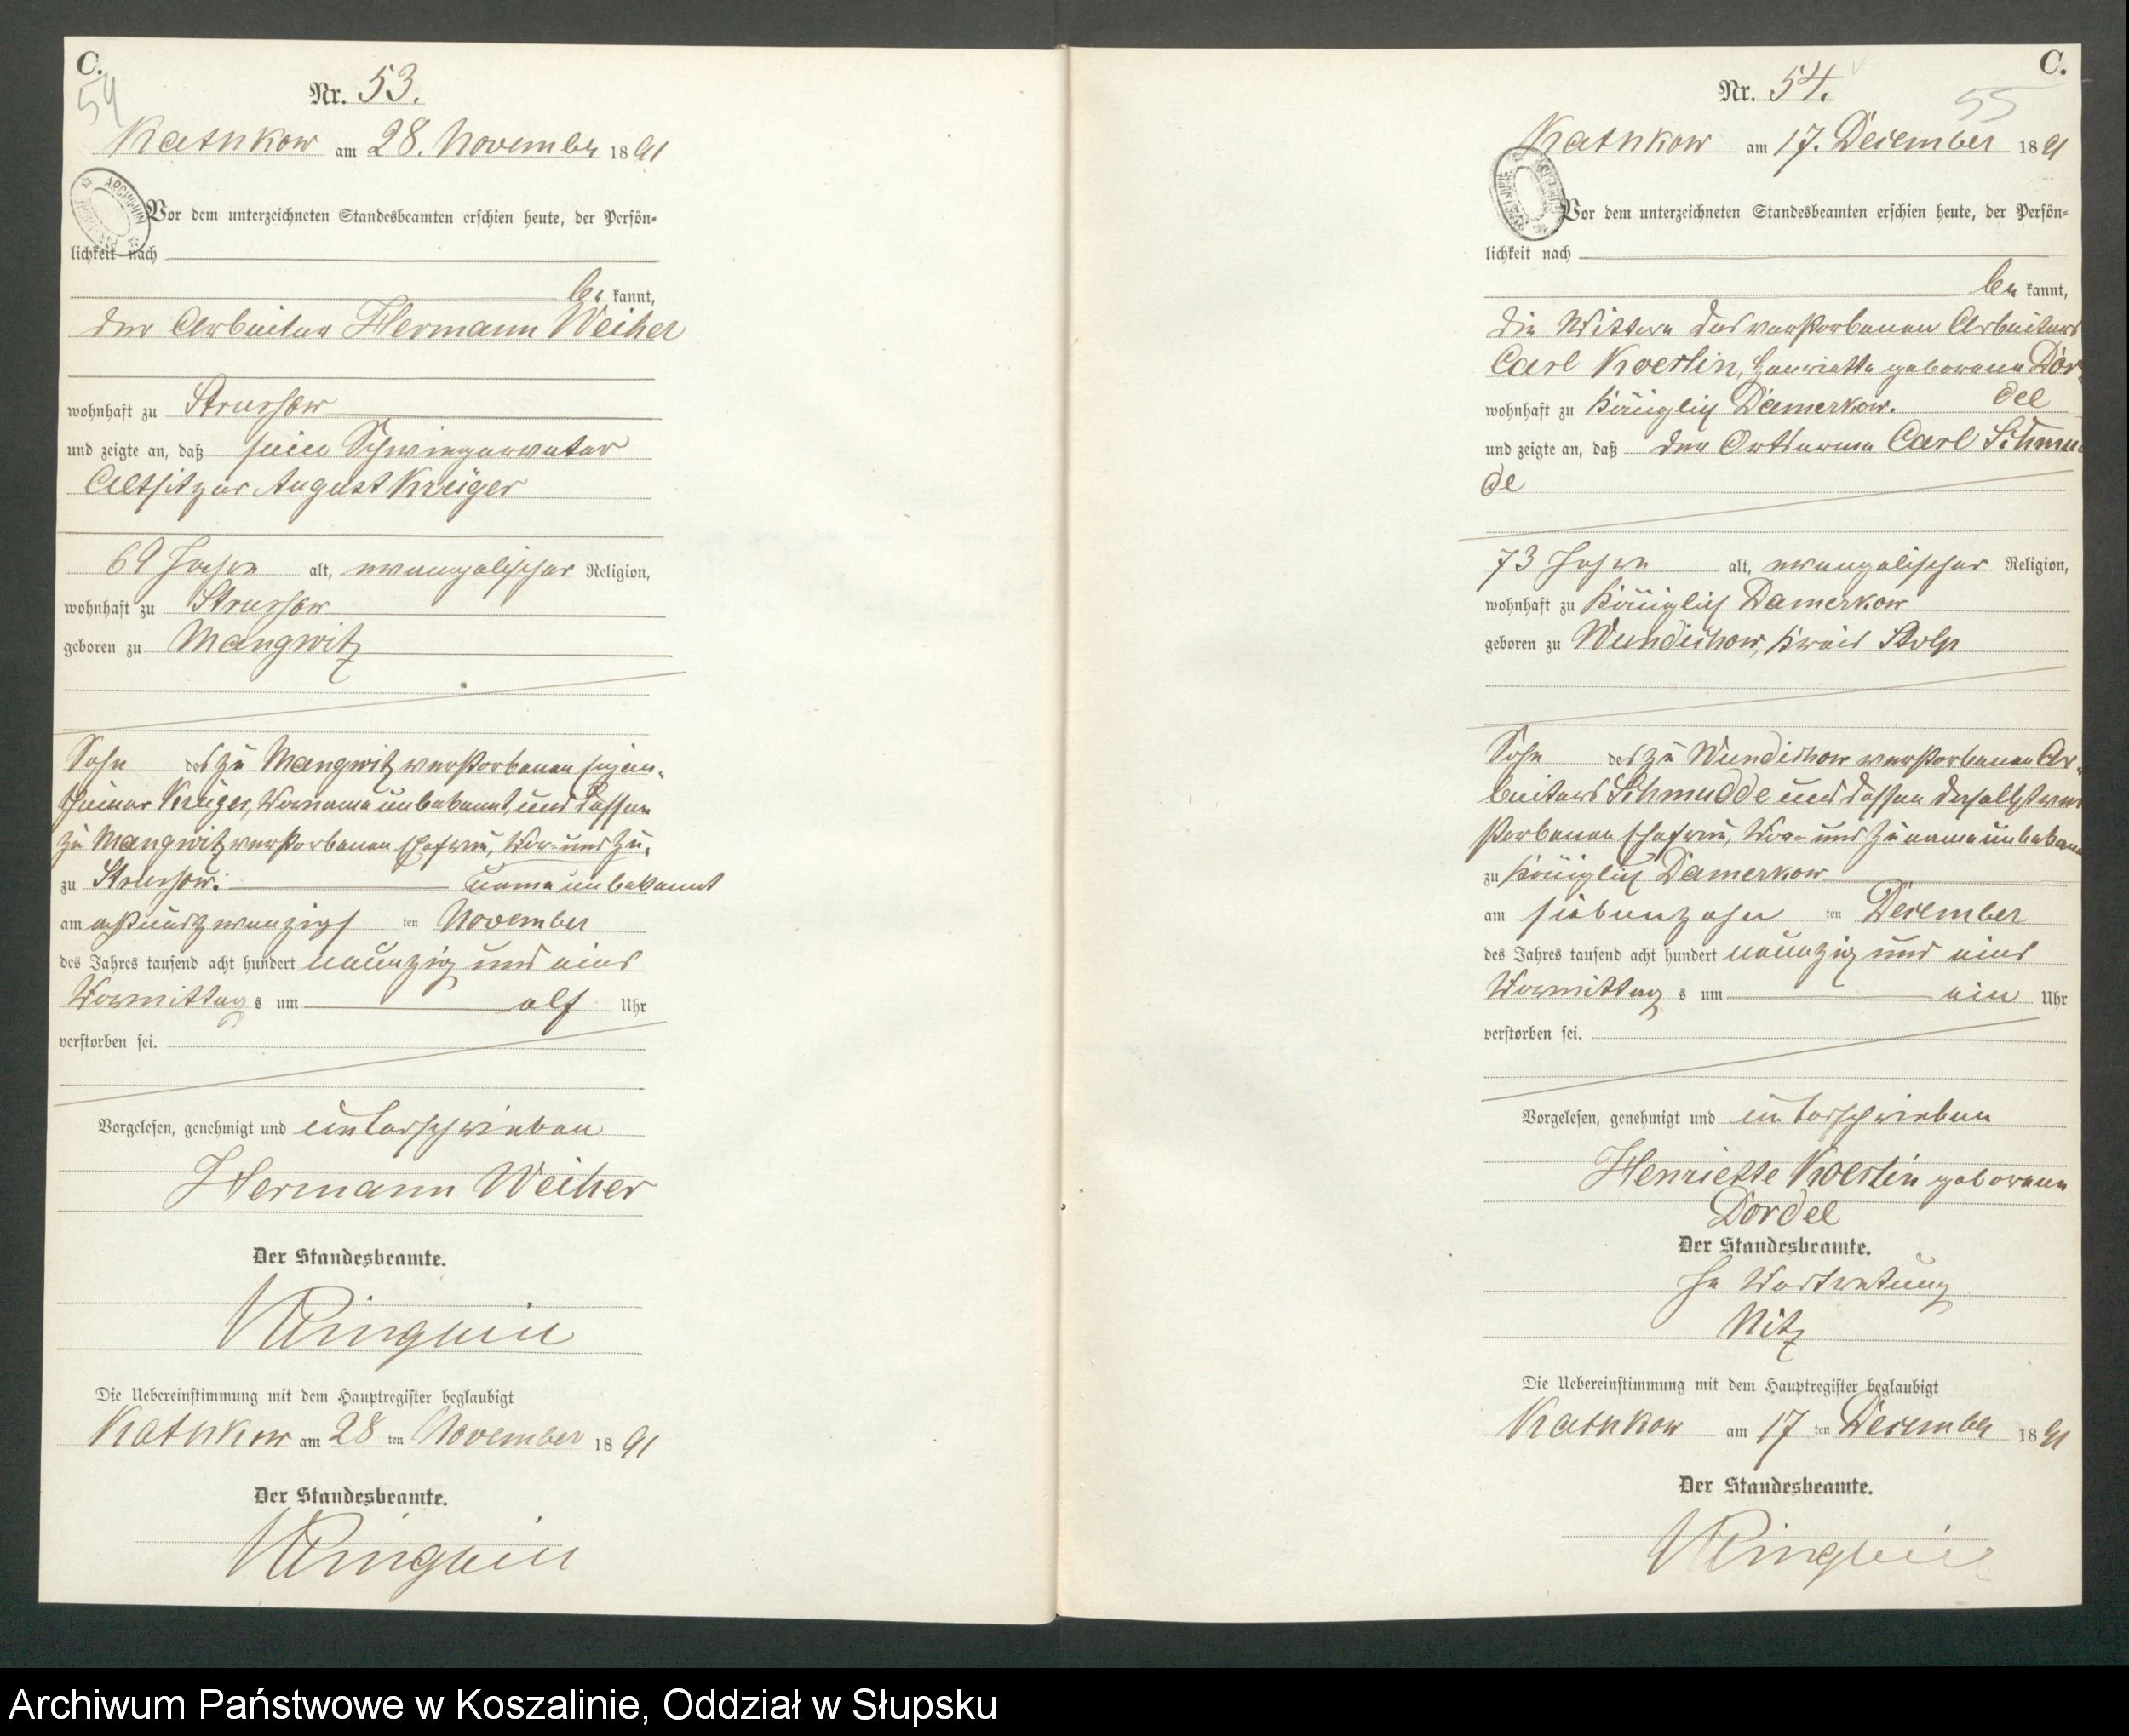 C.
54
Nr. 53.
Kathkow am 28. November 1891
Vor dem unterzeichneten Standesbeamten erschien heute, der Persön-
lichkeit nach
be kannt,
der Arbeiter Hermann Weiher
wohnhaft zu Strussow
und zeigte an, daß sein Schwiegervater
Altsitzer August Krüger
69 Jahre alt, evangelischer Religion,
wohnhaft zu Strussow
geboren zu Mangwitz
Sohn des zu Mangwitz verstorbenen Eigen-
thümer Krüger, Vorname unbekannt, und dessen
zu Mangwitz verstorbenen Ehefrau, Vor- und Zu-
zu Strussow. name unbekannt
am achtundzwanzigs ten November
des Jahres tausend acht hundert neunzig und eins
Vormittag s um elf Uhr
verstorben sei.
Vorgelesen, genehmigt und unterschrieben
Hermann Weiher
Der Standesbeamte.
Die Uebereinstimmung mit dem Hauptregister beglaubigt
Kathkow am 28 ten November 1891
Der Standesbeamte.
C.
55
Nr. 54.
Kathkow am 17. December 1891
Vor dem unterzeichneten Standesbeamten erschien heute, der Persön-
lichkeit nach
be kannt,
die Wittwe des verstorbenen Arbeiters
Carl Koerlin, Henriette geborene Dör-
wohnhaft zu Königlich Damerkow. del
und zeigte an, daß der Ortsarme Carl Schmud
de
73 Jahre alt, evangelischer Religion,
wohnhaft zu Königlich Damerkow
geboren zu Wundichow, Kreis Stolp
Sohn des zu Wundichow verstorbenen Ar-
beiters Schmudde und dessen daselbst ver
storbenen Ehefrau, Vor- und Zuname unbekannt
zu Königlich Damerkow
am siebenzehn ten December
des Jahres tausend acht hundert neunzig und eins
Vormittag s um ein Uhr
verstorben sei.
Vorgelesen, genehmigt und unterschrieben
Henriette Koerlin geborene
Dördel
Der Standesbeamte.
In Vertretung
Nitz
Die Uebereinstimmung mit dem Hauptregister beglaubigt
Kathkow am 17 ten December 1891
Der Standesbeamte.
Archiwum Państwowe w Koszalinie, Oddział w Słupsku